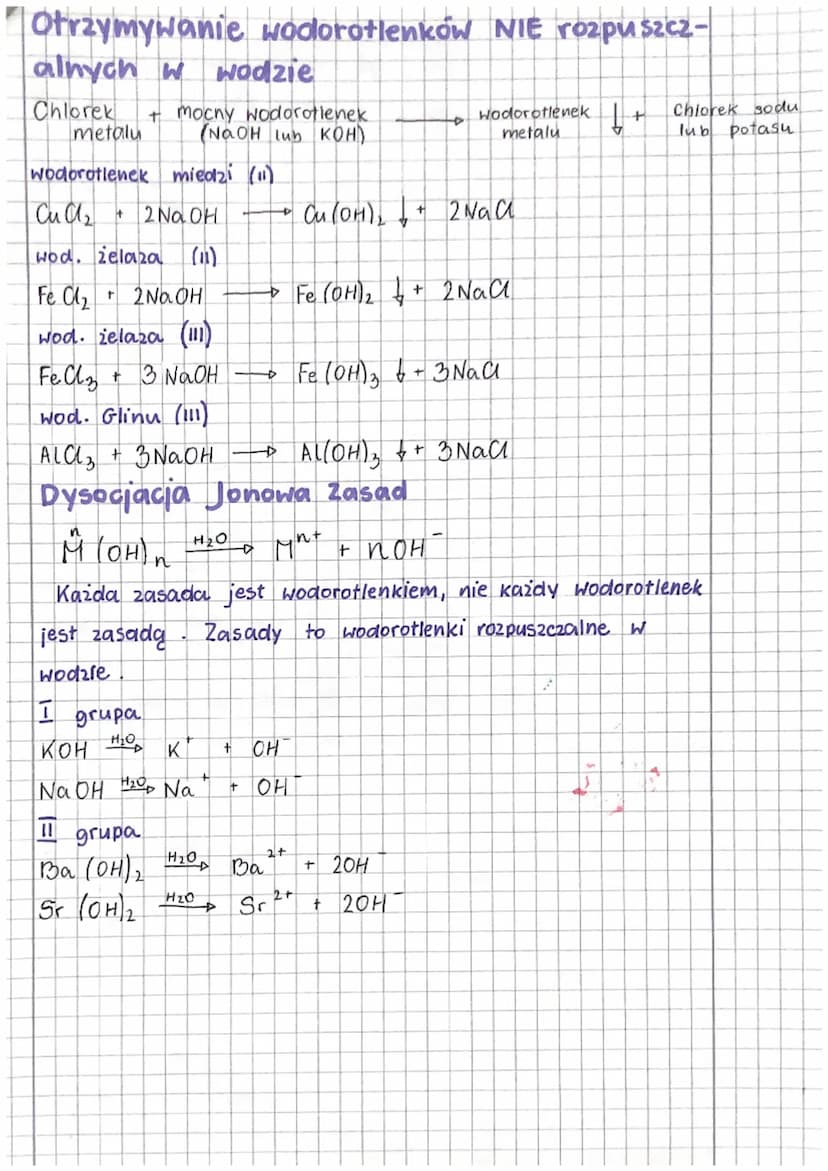 Otrzymywanie wodorotlenków NIE rozpuszcz-
alnych w wodzie
Chlorek metalu + mocny wodorotlenek (NaOH lub KOH) → wodorotlenek metalu ↓ + Chlorek sodu lub potasu
wodorotlenek miedzi (II)
CuCl₂ + 2NaOH → Cu(OH)₂ ↓ + 2NaCl
wod. żelaza (II)
FeCl₂ + 2NaOH → Fe(OH)₂ ↓ + 2NaCl
wod. żelaza (III)
FeCl₃ + 3NaOH → Fe(OH)₃ ↓ + 3NaCl
wod. Glinu (III)
AlCl₃ + 3NaOH → Al(OH)₃ ↓ + 3NaCl
Dysocjacja Jonowa Zasad
ⁿM(OH)ₙ —H₂O→ Mⁿ⁺ + nOH⁻
Każda zasada jest wodorotlenkiem, nie każdy wodorotlenek
jest zasadą. Zasady to wodorotlenki rozpuszczalne w
wodzie.
I grupa
KOH —H₂O→ K⁺ + OH⁻
NaOH —H₂O→ Na⁺ + OH⁻
II grupa
Ba(OH)₂ —H₂O→ Ba²⁺ + 2OH⁻
Sr(OH)₂ —H₂O→ Sr²⁺ + 2OH⁻